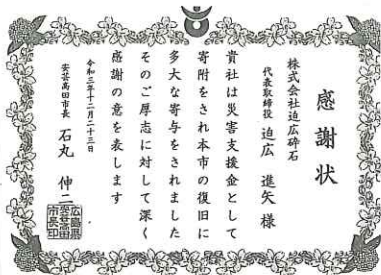 感謝状
株式会社迫広砕石
代表取締役 迫広 進矢 様
貴社は災害支援金として
寄附をされ本市の復旧に
多大な寄与をされました
そのご厚志に対して深く
感謝の意を表します
令和三年十二月二十三日
安芸高田市長 石丸 伸二
広島県
安芸高田
市長印